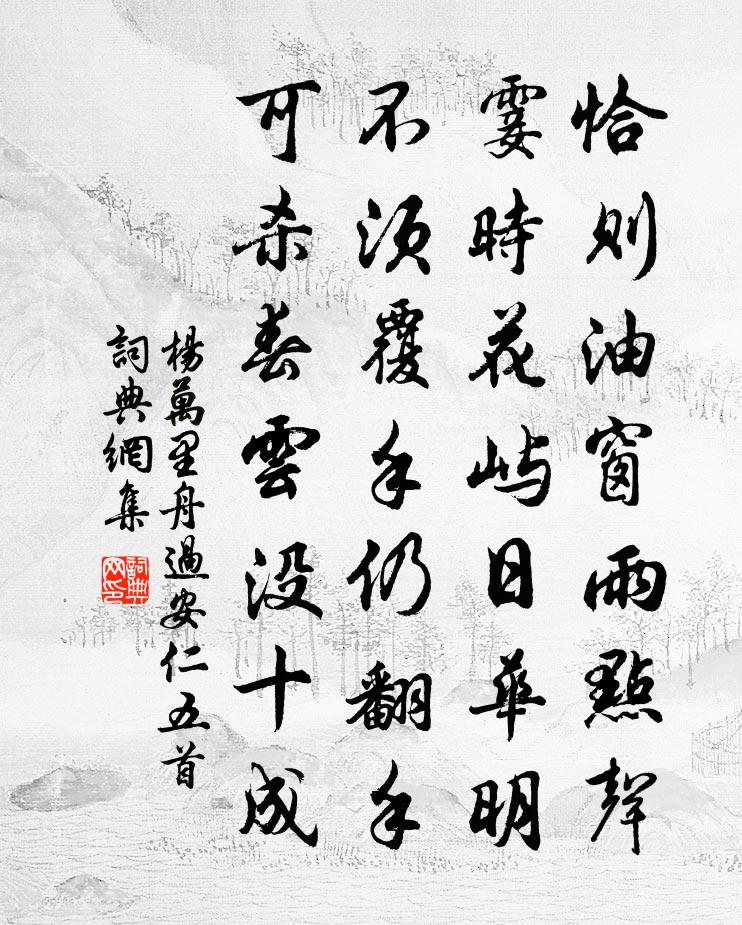 恰則油窗雨點聲
霎時花嶼日華明
不須覆手仍翻手
可杀春雲没十成
楊萬里舟過安仁五首
詞典網集
詞典网印